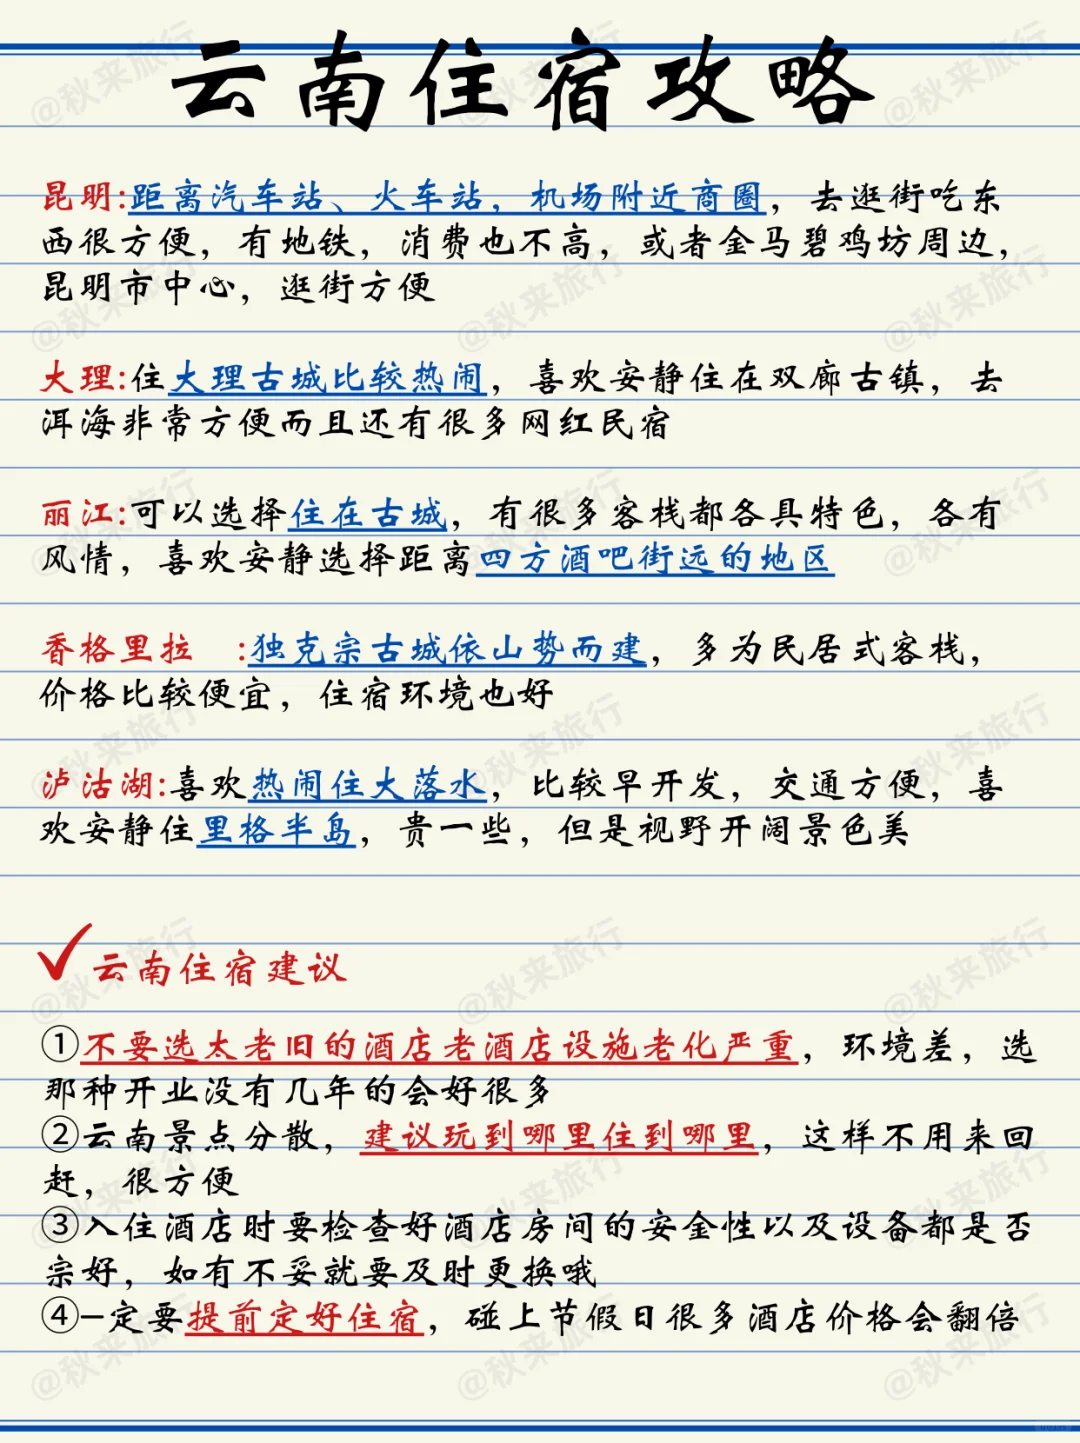 云南住宿攻略
昆明:距离汽车站、火车站，机场附近商圈，去逛街吃东
西很方便，有地铁，消费也不高，或者金马碧鸡坊周边，
昆明市中心，逛街方便
大理:住大理古城比较热闹，喜欢安静住在双廊古镇，去
洱海非常方便而且还有很多网红民宿
丽江:可以选择住在古城，有很多客栈都各具特色，各有
风情，喜欢安静选择距离四方酒吧街远的地区
香格里拉 :独克宗古城依山势而建，多为民居式客栈，
价格比较便宜，住宿环境也好
泸沽湖:喜欢热闹住大落水，比较早开发，交通方便，喜
欢安静住里格半岛，贵一些，但是视野开阔景色美
云南住宿建议
①不要选太老旧的酒店老酒店设施老化严重，环境差，选
那种开业没有几年的会好很多
②云南景点分散，建议玩到哪里住到哪里，这样不用来回
赶，很方便
③入住酒店时要检查好酒店房间的安全性以及设备都是否
宗好，如有不妥就要及时更换哦
④一定要提前定好住宿，碰上节假日很多酒店价格会翻倍
@秋来旅行